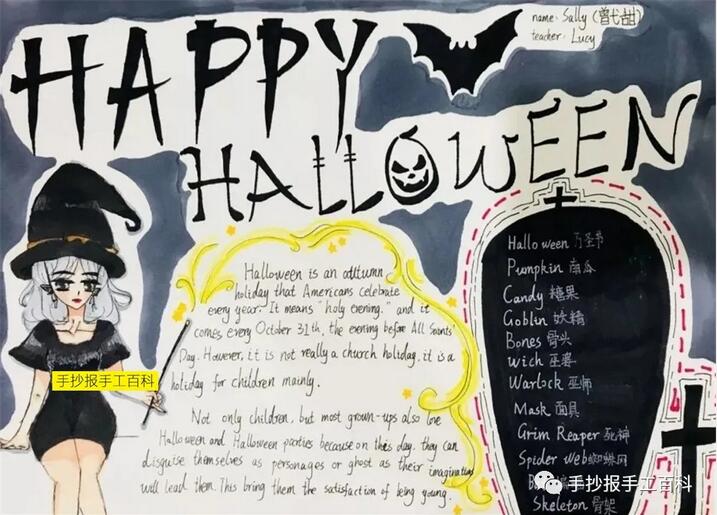 HAPPY
HALLOWEEN
name: Sally (曾弋甜)
teacher: Lucy
Halloween is an autumn
holiday that Americans celebrate
every year. It means "holy evening." and it
comes every October 31th, the evening before All Saints'
Day. However, it is not really a church holiday, it is a
holiday for children mainly.
Not only children, but most grown-ups also love
Halloween and Halloween parties because on this day, they can
disguise themselves as personages or ghost as their imagination
will lead them. This bring them the satisfaction of being young.
Halloween 万圣节
Pumpkin 南瓜
Candy 糖果
Goblin 妖精
Bones 骨头
Wich 巫婆
Warlock 巫师
Mask 面具
Grim Reaper 死神
Spider Web 蜘蛛网
Skeleton 骨架
手抄报手工百科
手抄报手工百科